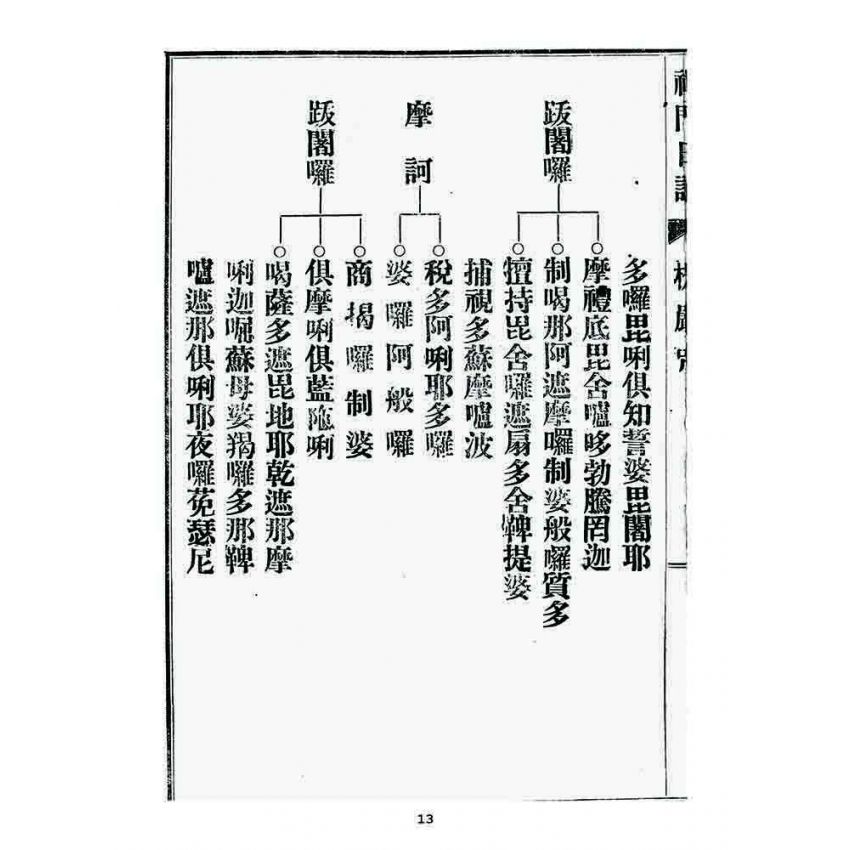 禪門日誦 楞嚴咒
多囉毘唎俱知誓婆毘闍耶
跋闍囉
摩禮底毘舍嚧哆勃騰罔迦
制喝那阿遮摩囉制婆般囉質多
擅持毘舍囉遮扇多舍鞞提婆
捕視多蘇摩嚧波
摩訶
稅多阿唎耶多囉
婆囉阿般囉
跋闍囉
商揭囉制婆
俱摩唎俱藍陁唎
喝薩多遮毘地耶乾遮那摩
唎迦啒蘇母婆羯囉多那鞞
嚧遮那俱唎耶夜囉菟瑟尼
13